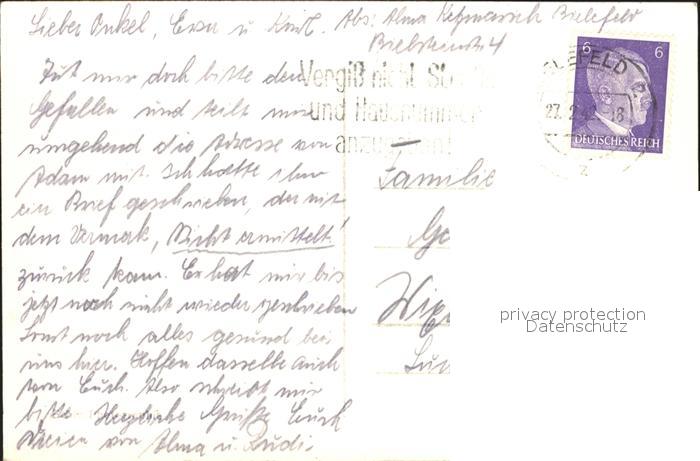 Lieber Onkel, Erna u. Kind. Abs: Alma Bielefeld
4
Tut mir doch bitte den
Gefallen und teilt mir
umgehend die Adresse von
Adam mit. Ich hatte ihm
ein Brief geschrieben, der mit
dem Vermerk, "Nicht ermittelt"
zurück kam. Er hat mir bis
jetzt noch nicht wieder geschrieben
Sonst noch alles gesund bei
uns hier. Hoffen dasselbe auch
von Euch. Also schreibt mir
bitte. Herzliche Grüße Euch
von Alma u. Rudi.
Vergiß nicht
und Hausnummer
anzugeben
6 6
BIELEFELD 2
27. 2. 4 -18
z
DEUTSCHES REICH
Familie
Ge
Wi
Lu
privacy protection
Datenschutz